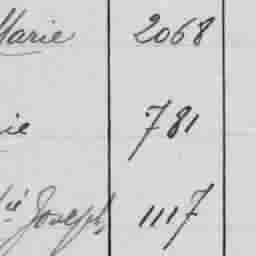 Marie 2068
ie 781
ié Joseph 1117